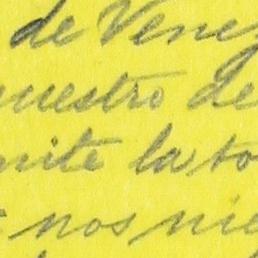 de Venez
nuestro de
mite la to
nos nie